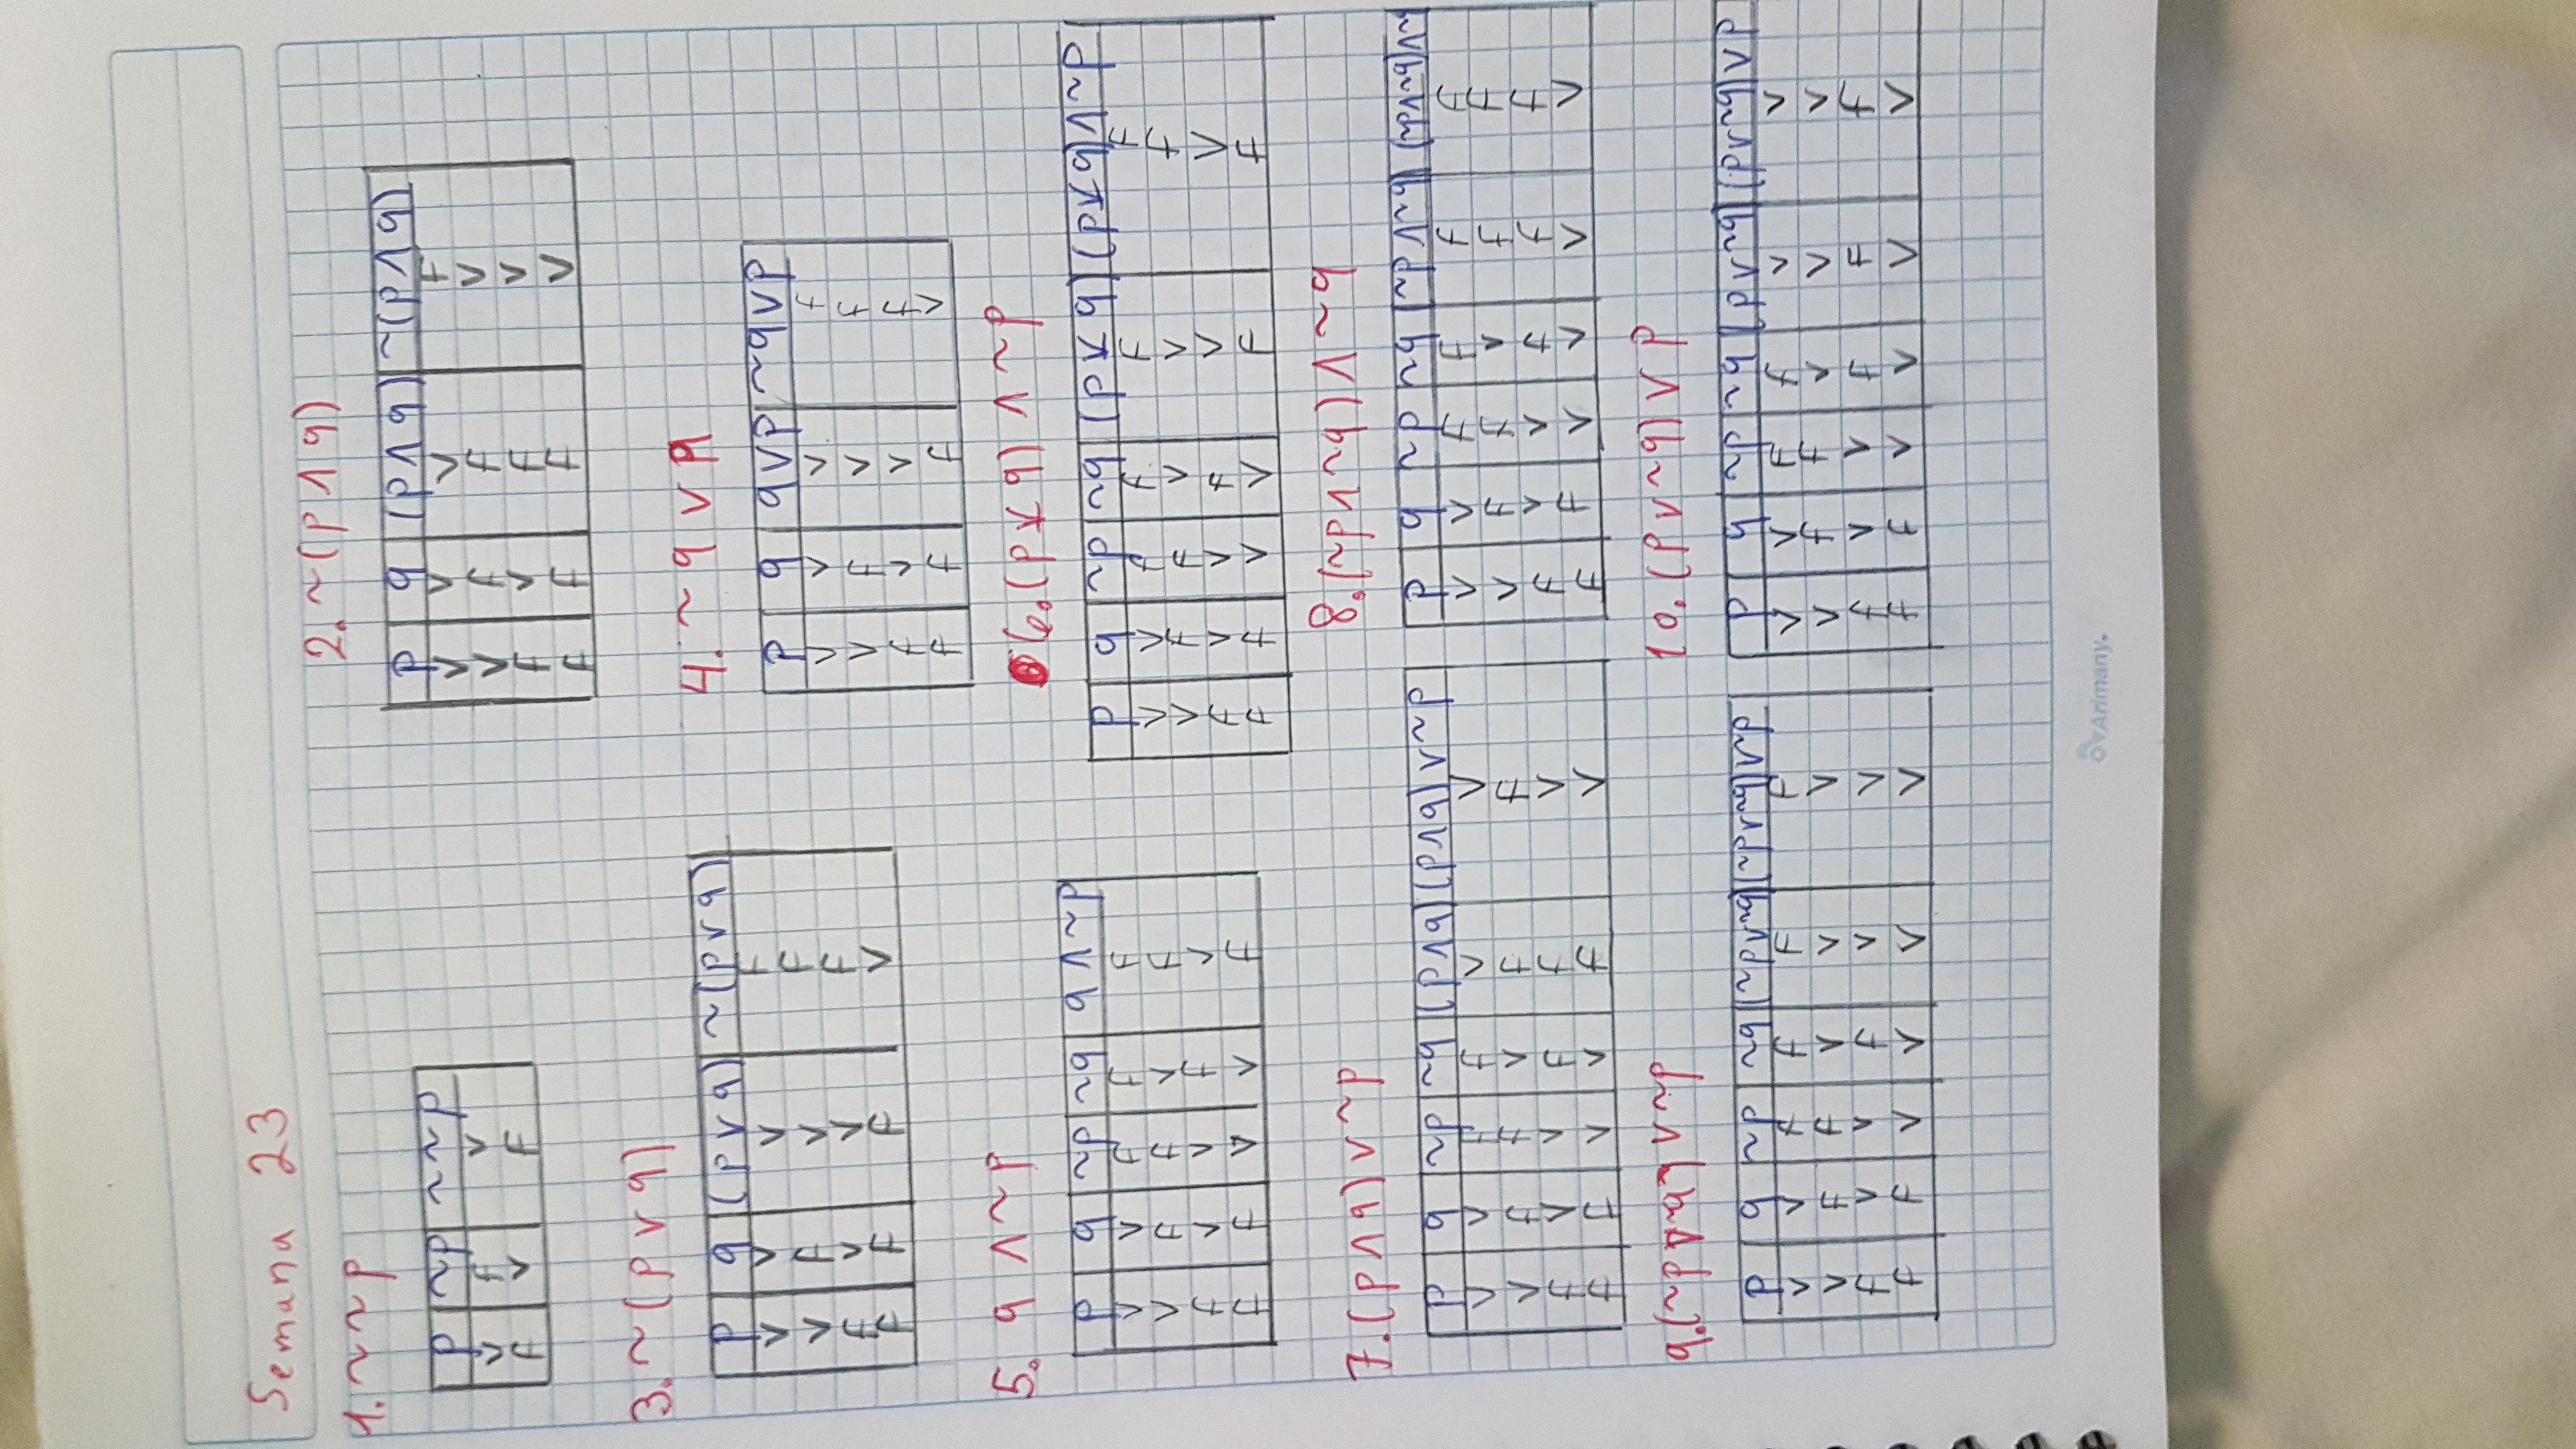 Semana 23
1. ~~p
p ~p ~~p
V F V
F V F
2. ~(p∧q)
p q (p∧q) ~(p∧q)
V V V F
V F F V
F V F V
F F F V
3. ~(p∨q)
p q (p∨q) ~(p∨q)
V V V F
V F V F
F V V F
F F F V
4. ~q∨p
p q q∨p ~q∨p
V V V F
V F V F
F V V F
F F F V
5. q∧~p
p q ~p ~q q∧~p
V V F F F
V F F V F
F V V F V
F F V V F
6. (p⊻q)∧~p
p q ~p ~q (p⊻q) (p⊻q)∧~p
V V F F F F
V F F V V F
F V V F V V
F F V V F F
7. (p∧q)∨~p
p q ~p ~q (p∧q) (p∧q)∨~p
V V F F V V
V F F V F F
F V V F F V
F F V V F V
8. (~p∧~q)∧~q
p q ~p ~q ~p∧~q (~p∧~q)∧~
V V F F F F
V F F V F F
F V V F F F
F F V V V V
9. (~p∨~q)∨~p
p q ~p ~q (~p∨~q) (~p∨~q)∨~p
V V F F F F
V F F V V V
F V V F V V
F F V V V V
10. (p∨~q)∨p
p q ~p ~q (p∨~q) (p∨~q)∨p
V V F F V V
V F F V V V
F V V F F F
F F V V V V
Arimany.